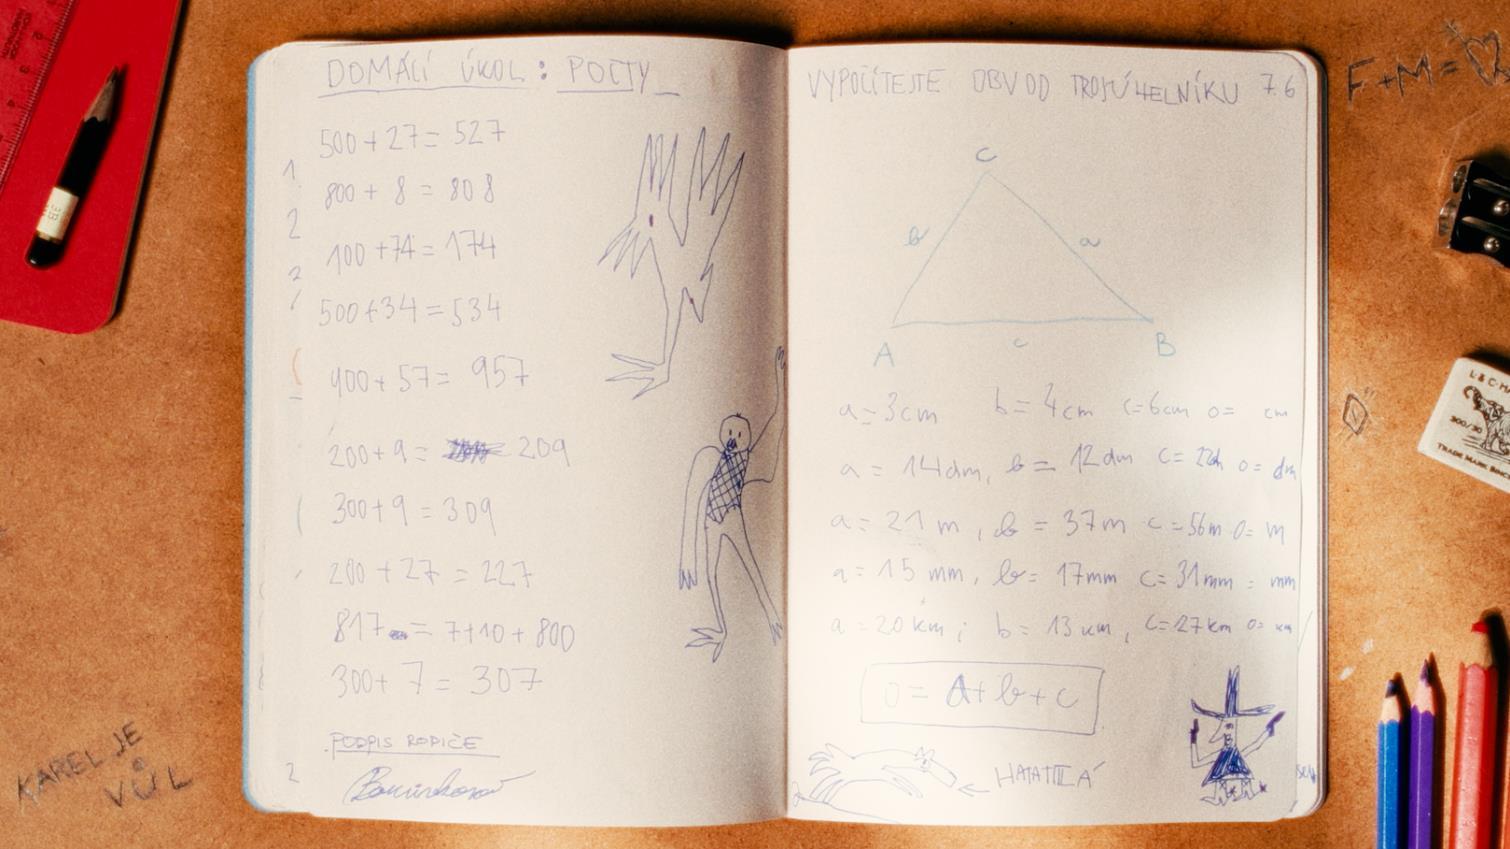 DOMÁCÍ ÚKOL: POČTY
500 + 27 = 527
800 + 8 = 808
100 + 74 = 174
500 + 34 = 534
900 + 57 = 957
200 + 9 = 209
300 + 9 = 309
200 + 27 = 227
817 = 7 + 10 + 800
300 + 7 = 307
PODPIS RODIČE
VYPOČÍTEJTE OBVOD TROJÚHELNÍKU 7.6
C
b a
A c B
a = 3cm b = 4cm c = 6cm o = cm
a = 14dm, b = 12dm c = 22dm o = dm
a = 21 m, b = 37m c = 56m o = m
a = 15 mm, b = 17mm c = 31mm = mm
a = 20 km; b = 13 km, c = 27km o = km
o = A + b + c
HATATITLÁ
F + M =
KAREL JE
VŮL
L & C HA
300/30
TRADE MARK